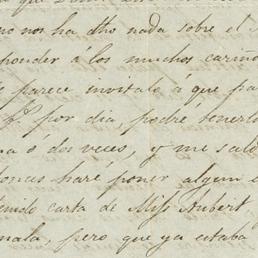 no nos ha dho nada sobre el
ponder á los muchos cariño
parece invitalo á que pa
por dia, podré tenerlo
na ó dos veces, y me salu
onces haré poner algun
tenido carta de Miss Aubert,
mala, pero que ya estaba